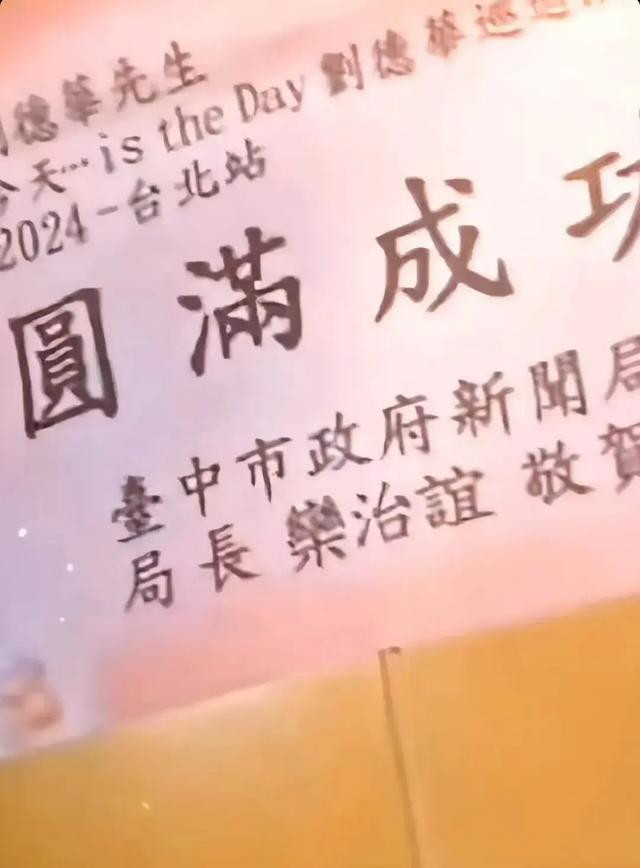 德華先生
今天…is the Day 劉德華巡迴
2024-台北站
圓滿成功
臺中市政府新聞局
局長 欒治誼 敬賀